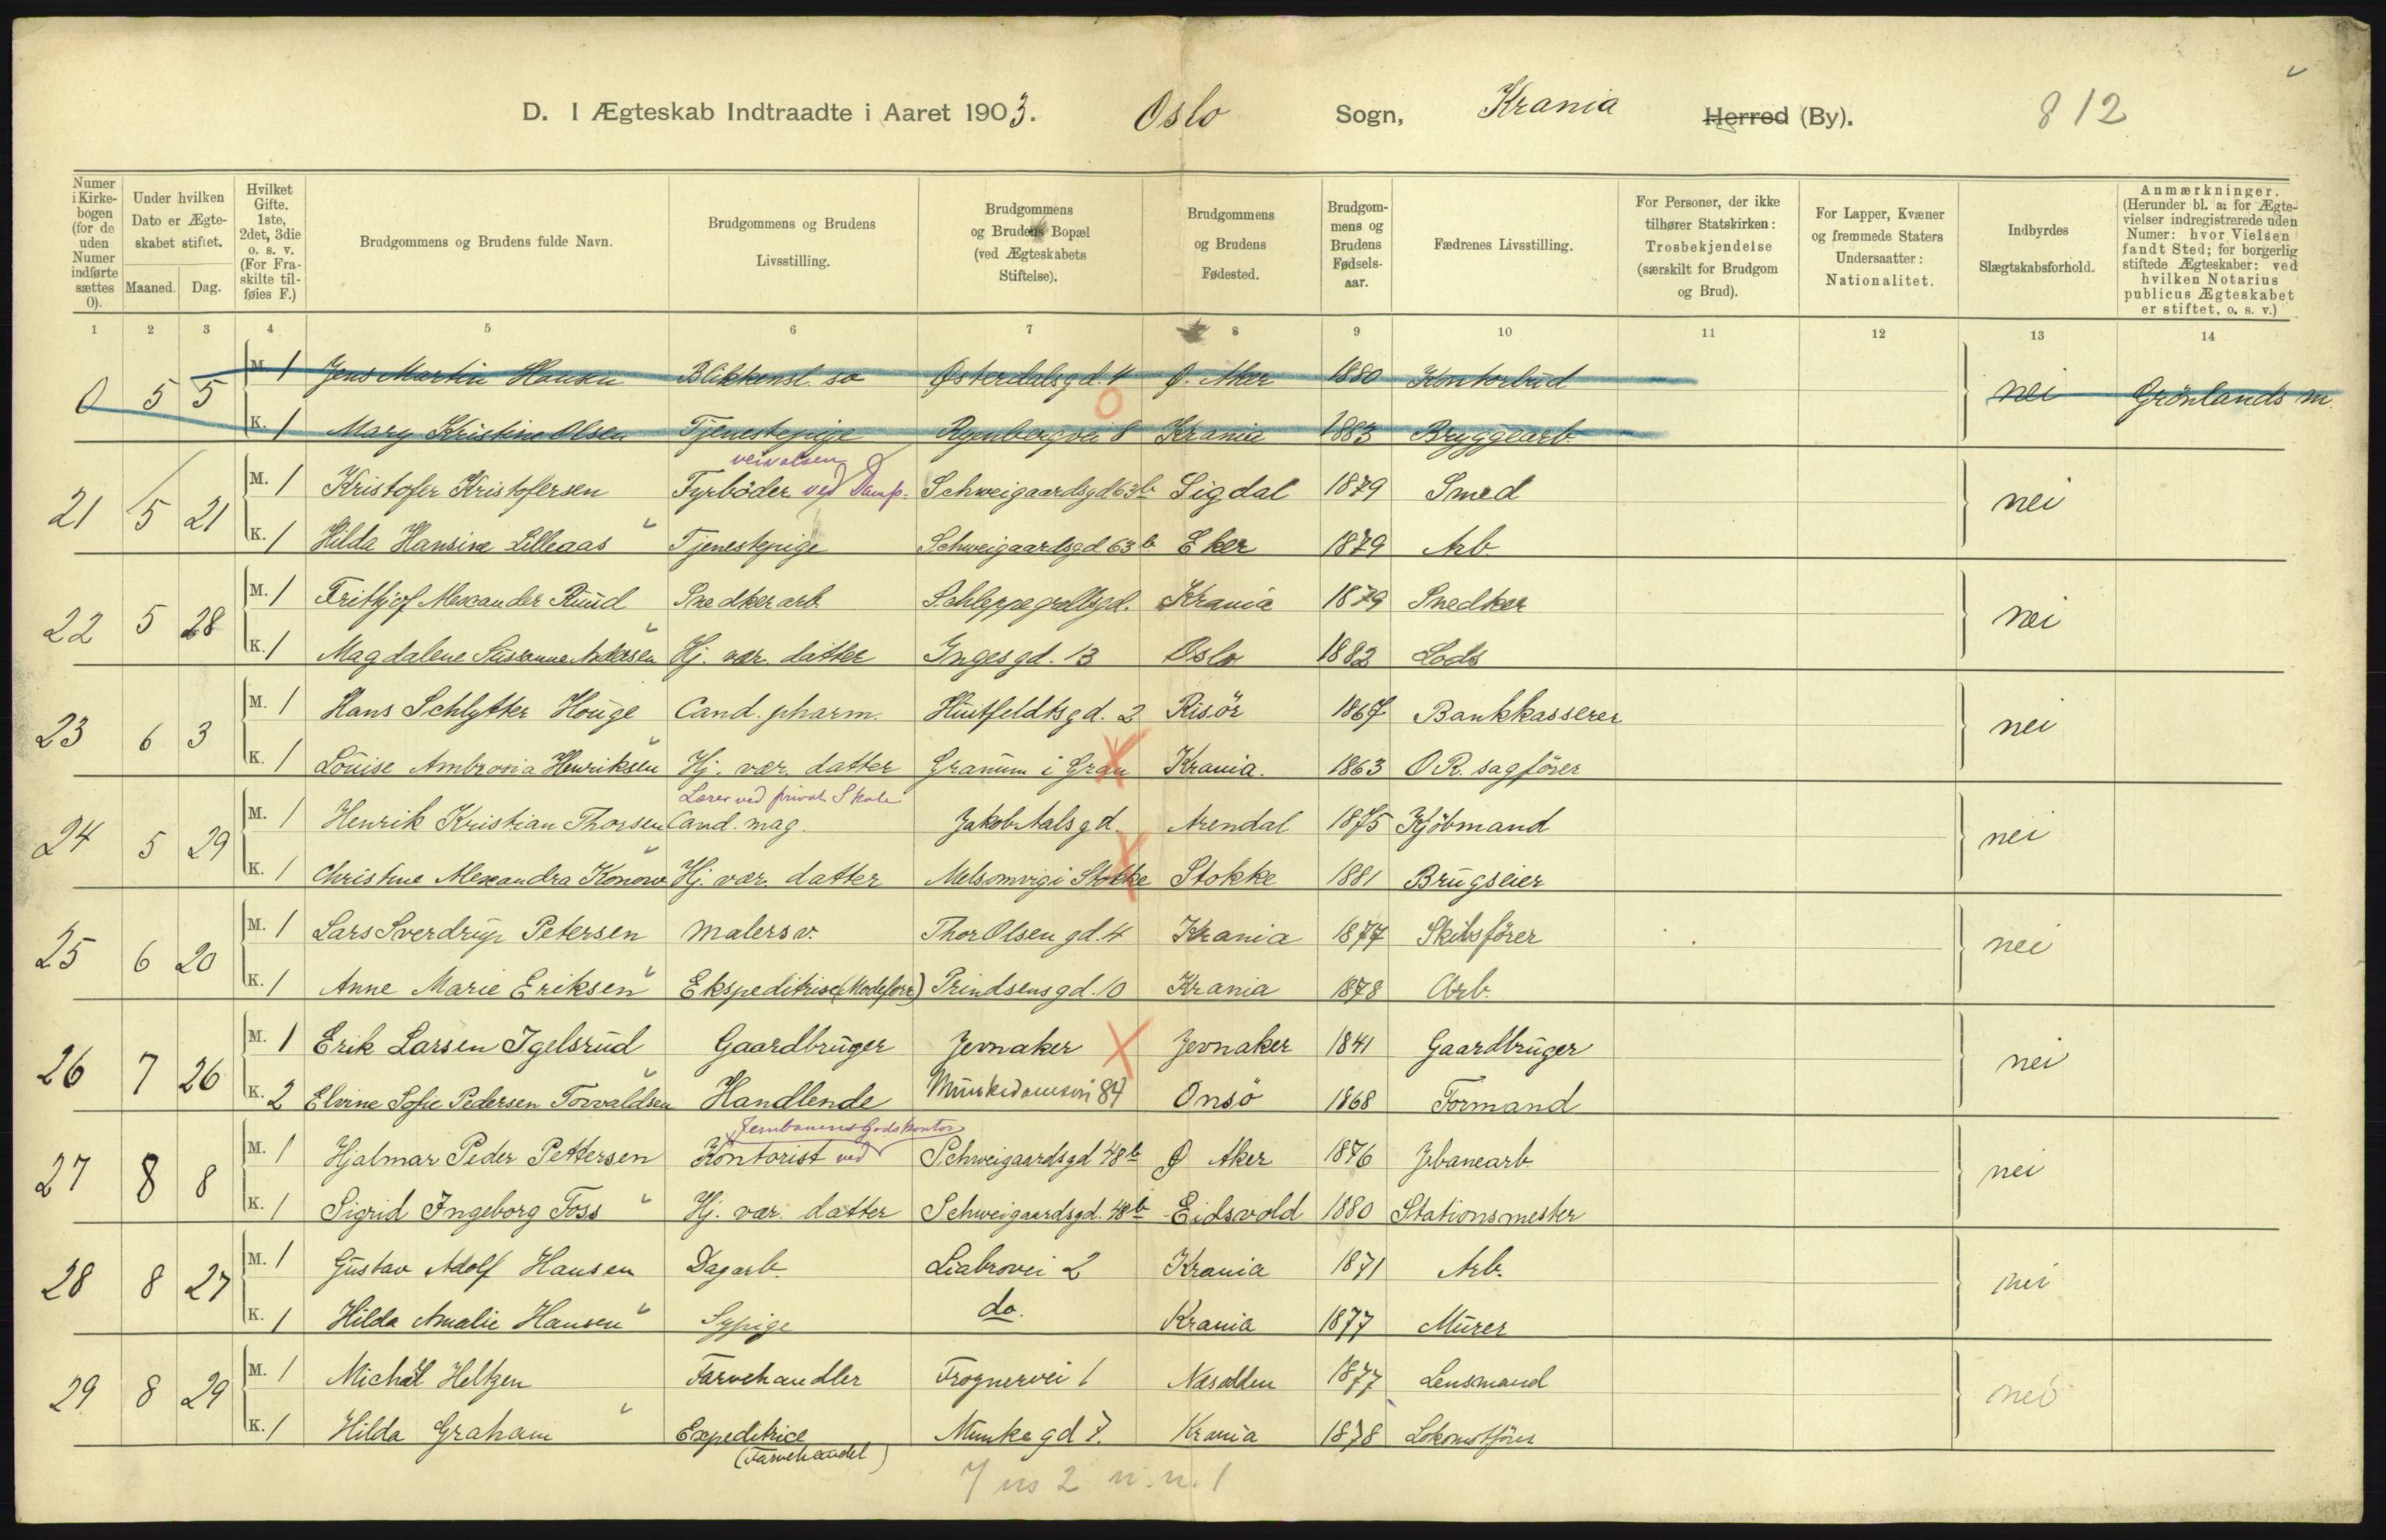 D. I Ægteskab Indtraadte i Aaret 1903. Oslo Sogn, Krania Herred (By). 812
Numer i Kirkebogen (for de uden Numer indførte sættes 0).
Under hvilken Dato er Ægteskabet stiftet.
Maaned. Dag.
Hvilket Gifte. 1ste, 2det, 3die o. s. v. (For Fraskilte tilføies F.)
Brudgommens og Brudens fulde Navn.
Brudgommens og Brudens Livsstilling.
Brudgommens og Brudens Bopæl (ved Ægteskabets Stiftelse).
Brudgommens og Brudens Fødested.
Brudgommens og Brudens Fødselsaar.
Fædrenes Livsstilling.
For Personer, der ikke tilhører Statskirken: Trosbekjendelse (særskilt for Brudgom og Brud).
For Lapper, Kvæner og fremmede Staters Undersaatter: Nationalitet.
Indbyrdes Slægtskabsforhold.
Anmærkninger. (Herunder bl. a. for Ægtevielser indregistrerede uden Numer: hvor Vielsen fandt Sted; for borgerlig stiftede Ægteskaber: ved hvilken Notarius publicus Ægteskabet er stiftet, o. s. v.)
1 2 3 4 5 6 7 8 9 10 11 12 13 14
0 5 5 M. 1 Jens Martin Hansen Blikkensl. sv Østerdalsgd. 4 Ø. Aker 1880 Kontorbud nei Grönlands m.
K. 1 Mary Kristine Olsen Tjenestepige Ryenbergvei 8 Krania 1883 Bryggearb.
veivalsen
21 5 21 M. 1 Kristofer Kristofersen Fyrböder ved Damp- Schweigaardsgd 63b Sigdal 1879 Smed nei
K. 1 Hilda Hansine Lilleaas Tjenestepige Schweigaardsgd. 63b Eker 1879 Arb.
22 5 28 M. 1 Frithjof Alexander Ruud Snedkerarb. Schleppegrellsgd. Krania 1879 Snedker nei
K. 1 Magdalene Susanne Andersen Hj. vær. datter Ingesgd. 13 Oslo 1882 Lods
23 6 3 M. 1 Hans Schlytter Houge Cand. pharm. Huitfeldtsgd. 2 Risör 1867 Bankkasserer nei
K. 1 Louise Ambrosia Henriksen Hj. vær. datter Granum i Gran Krania. 1863 O.R. sagförer
Lærer ved privat Skole
24 5 29 M. 1 Henrik Kristian Thorsen Cand. mag. Jakob Aalsgd. Arendal 1875 Kjöbmand nei
K. 1 Christine Alexandra Konow Hj. vær. datter Melsomvig i Stokke Stokke 1881 Brugseier
25 6 20 M. 1 Lars Sverdrup Petersen Malersv. Thor Olsengd. 4 Krania 1877 Skibsförer nei
K. 1 Anne Marie Eriksen Ekspeditrise (Modeforr) Prindsensgd. 10 Krania 1878 Arb.
26 7 26 M. 1 Erik Larsen Igelsrud Gaardbruger Jevnaker Jevnaker 1841 Gaardbruger nei
K. 2 Elvine Sofie Pedersen Torvaldsen Handlende Munkedamsvei 84 Onsö 1868 Formand
Jernbanens Godskontor
27 8 8 M. 1 Hjalmar Peder Pettersen Kontorist ved Schweigaardsgd 48b Ø Aker 1876 Jrbanearb. nei
K. 1 Sigrid Ingeborg Foss Hj. vær. datter Schweigaardsgd. 48b Eidsvold 1880 Stationsmester
28 8 27 M. 1 Gustav Adolf Hansen Dagarb. Liabrovei 2 Krania 1871 Arb. nei
K. 1 Hilda Amalie Hansen Sypige do. Krania 1877 Murer
29 8 29 M. 1 Michál Heltzen Farvehandler Frognervei 1 Næsodden 1877 Lensmand nei
K. 1 Hilda Graham Expeditrice Munkegd 7. Krania 1878 Lokomotförer
(Farvehandel)
7 us 2 u. u. 1